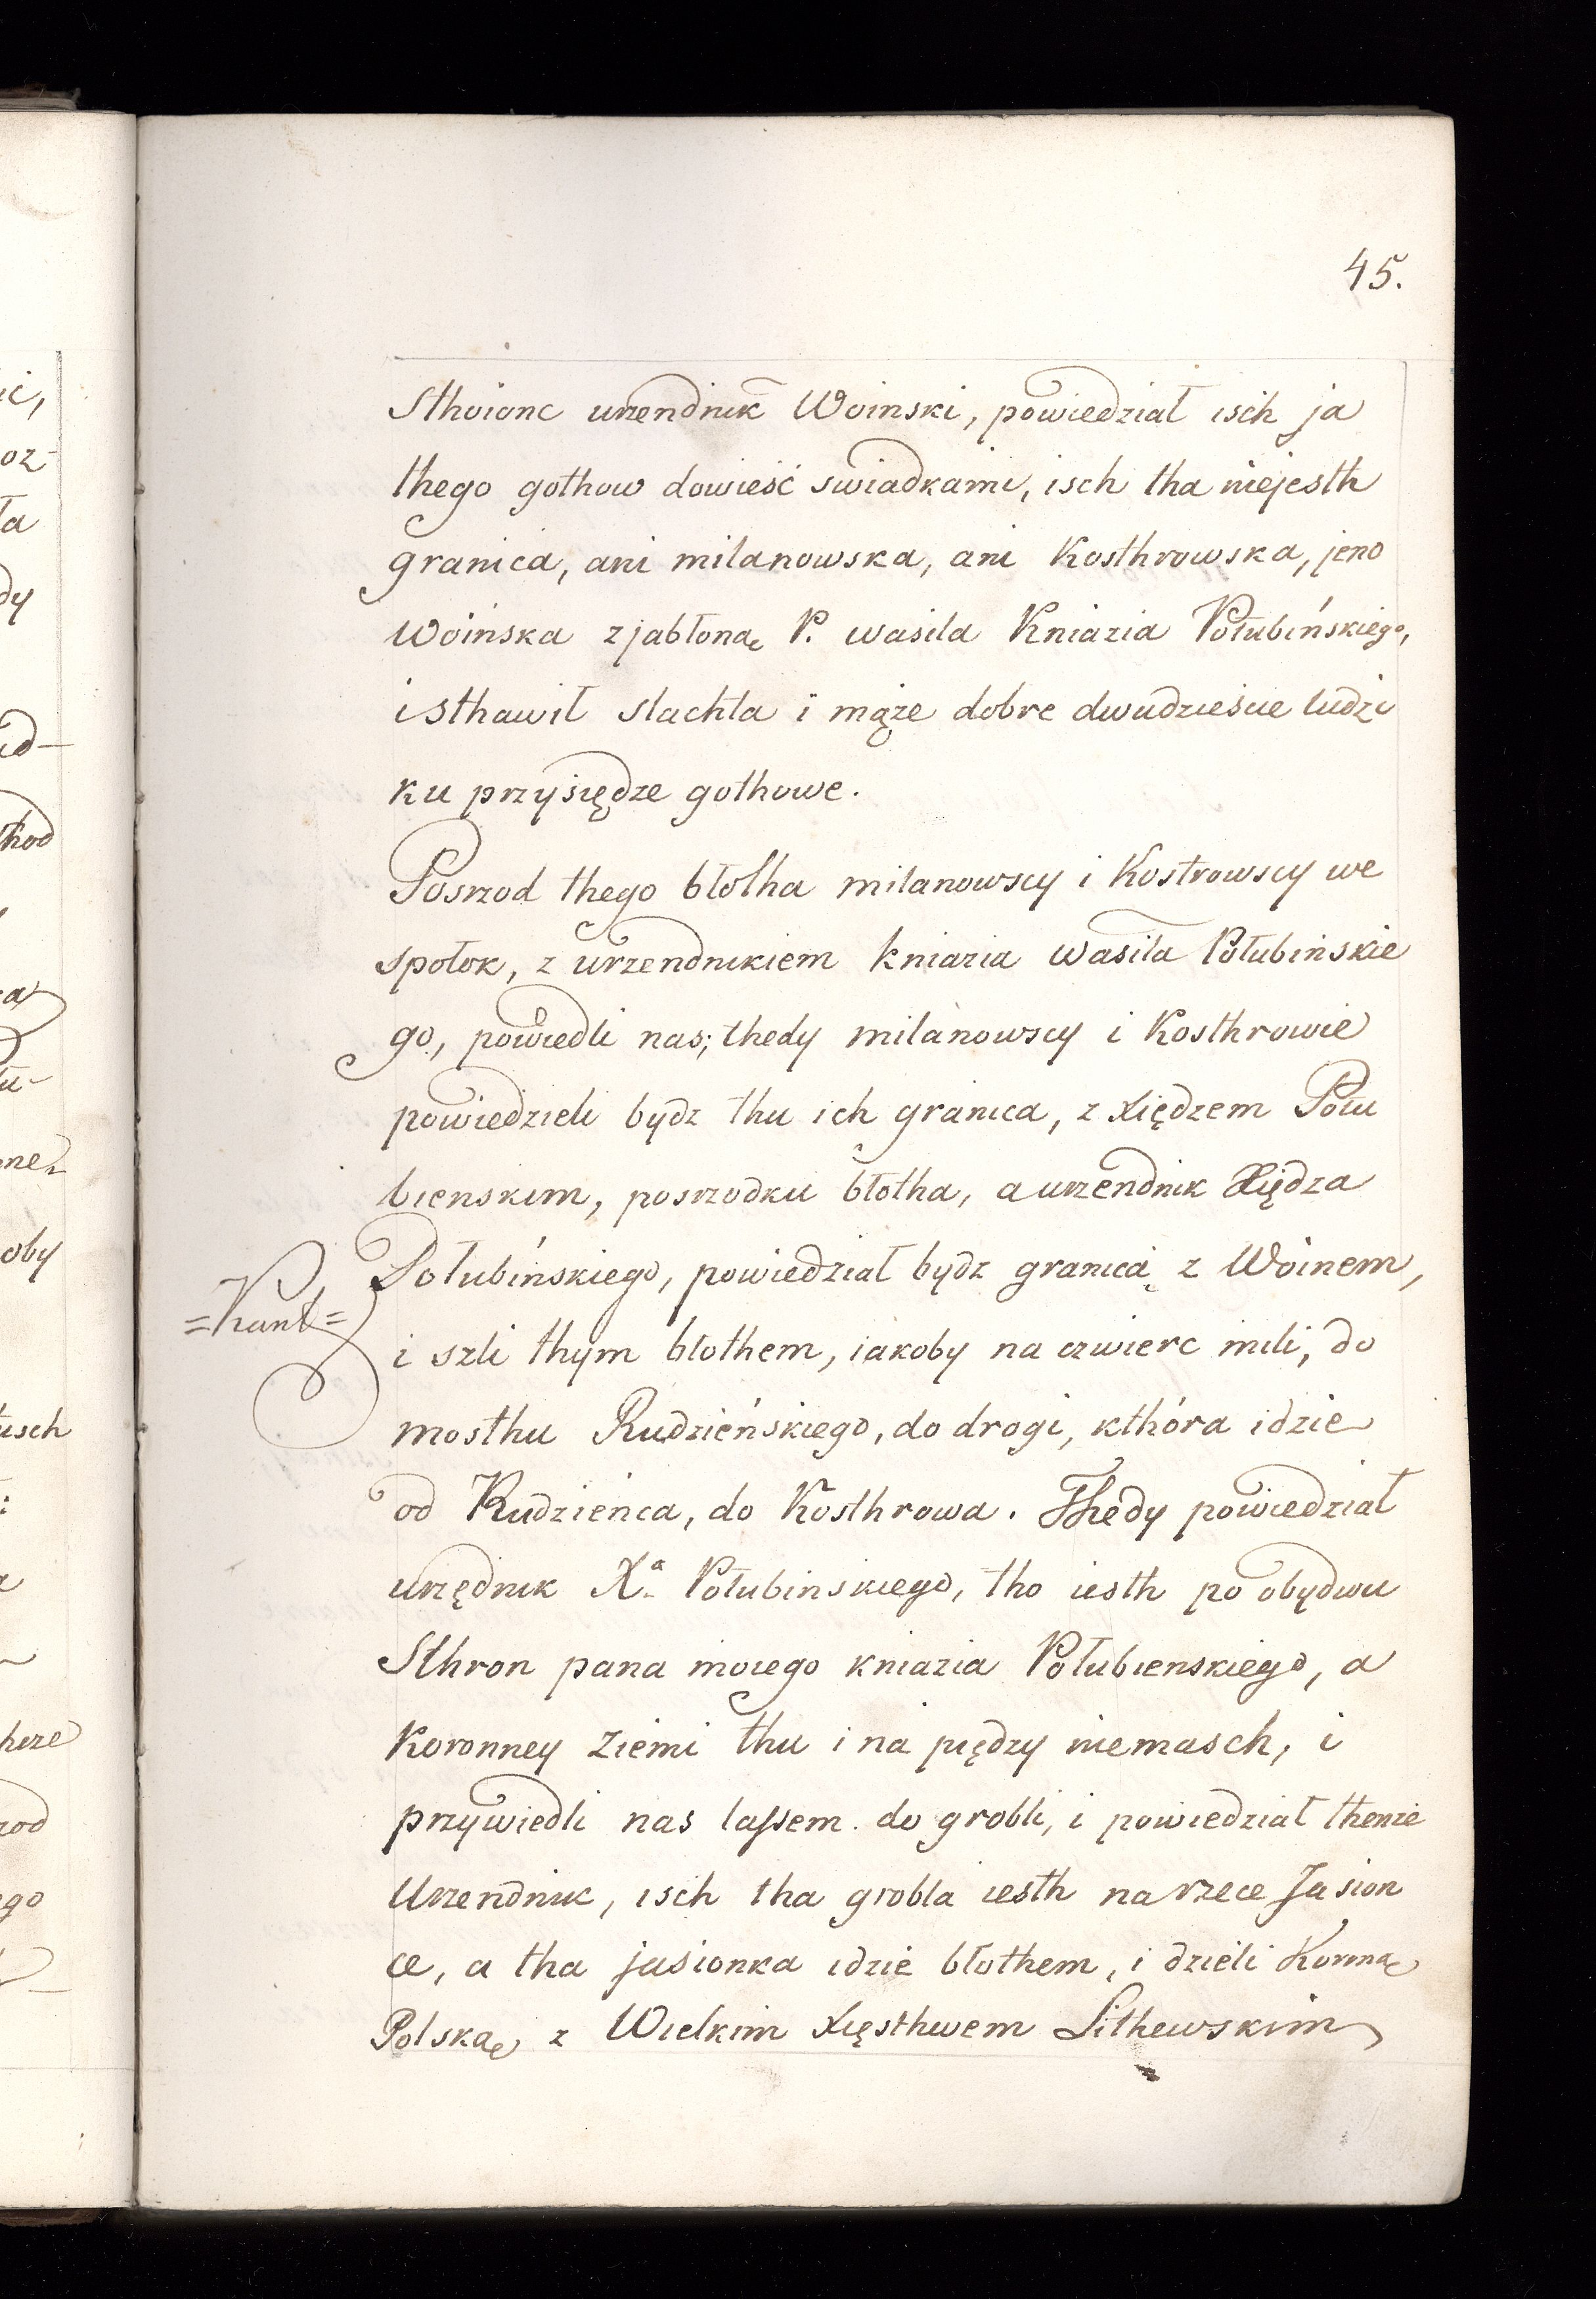 45.
Sthoionc urzendnik Woinski, powiedział isch ja
thego gothow dowieść swiadkami, isch tha niejesth
granica, ani milanowska, ani Kosthrowska, jeno
Woińska zjabłoną P. wasila Kniazia Połubińskiego,
i sthawił slachta i mąże dobre dwudzieście ludzi
ku przysiędze gothowe.
Posrzod thego błotha milanowscy i Kostrowscy we
społok, z urzendnikiem kniazia Wasila Połubinskie
go, powiedli nas; thedy milanowscy i Kosthrowie
powiedzieli bydz thu ich granica, z xiędzem Połu
bienskim, posrzodku błotha, a urzendnik Xiędza
Połubińskiego, powiedział bydz granicą z Woinem,
=Kunt=
i szli thym błothem, iakoby na czwierc mili, do
mosthu Rudzieńskiego, do drogi, kthóra idzie
od Rudzieńca, do Kosthrowa. Thedy powiedział
urzędnik Xa Połubinskiego, tho iesth po obydwu
Sthron pana moiego kniazia Połubienskiego, a
Koronney Ziemi thu i na piędzy niemasch, i
przywiedli nas lassem do grobli, i powiedział thenze
Urzendnik, isch tha grobla iesth na rzece Jasion
ce, a tha jasionka idzie błothem, i dzieli Koronną
Polską z Wielkim xięsthwem Lithewskim
ic,
oz-
ła
dy
id-
thod
ne
oby
usch
rod
ego